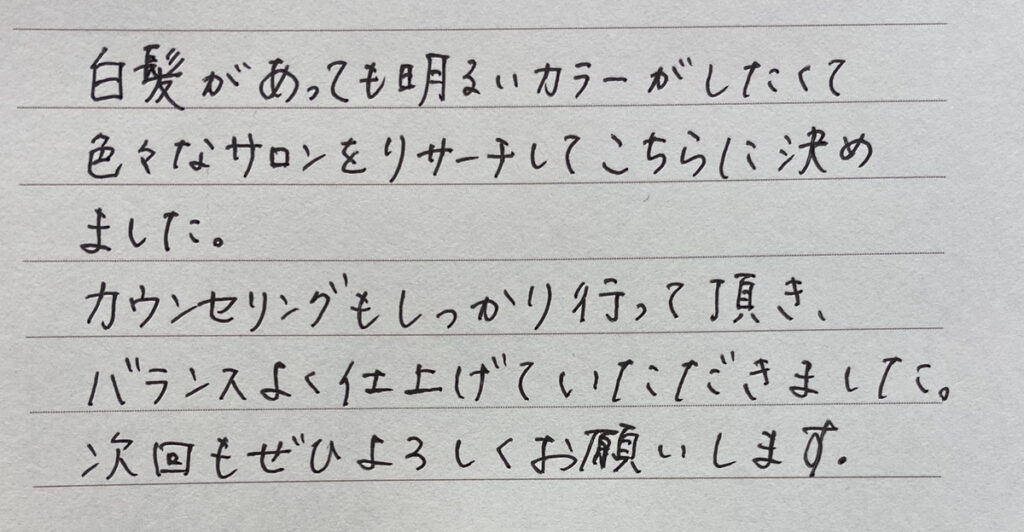 白髪があっても明るいカラーがしたくて
色々なサロンをリサーチしてこちらに決め
ました。
カウンセリングもしっかり行って頂き、
バランスよく仕上げていただきました。
次回もぜひよろしくお願いします.